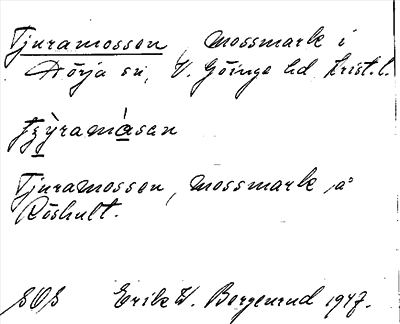 Tjuramossen, mossmark i
Hörja sn, V. Göinge hd Krist. l.
Tjuramossen, mossmark å
Röshult.
SOS Erik W. Borgenrud 1947.